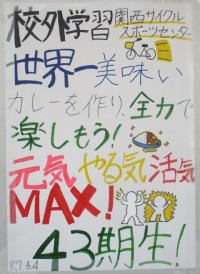 校外学習
関西サイクル
スポーツセンター
世界一美味い
カレーを作り、全力で
楽しもう!
元気やる気活気
MAX!
43期生!
R7.6.4